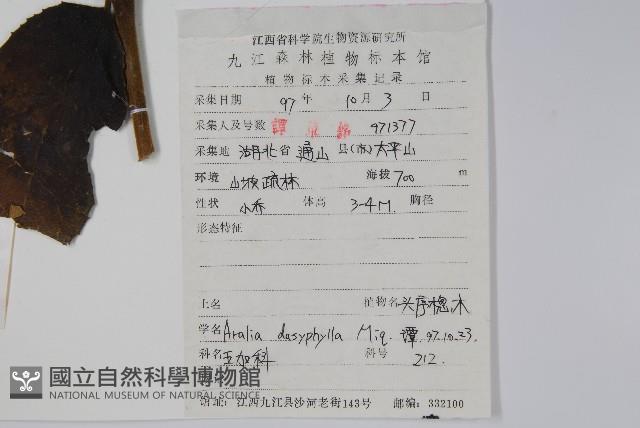 江西省科学院生物资源研究所
九江森林植物标本馆
植物标本采集记录
采集日期 97 年 10 月 3 日
采集人及号数 譚 971377
采集地 湖北 省 通山 县(市) 太平山
环境 山坡疏林 海拔 700 m
性状 小乔 体高 3-4M. 胸径
形态特征
土名 植物名 头序楤木
学名 Aralia dasyphylla Miq. 譚 97.10.23.
科名 五加科 科号 212.
國立自然科學博物館
NATIONAL MUSEUM OF NATURAL SCIENCE
馆址: 江西九江县沙河老街143号 邮编: 332100